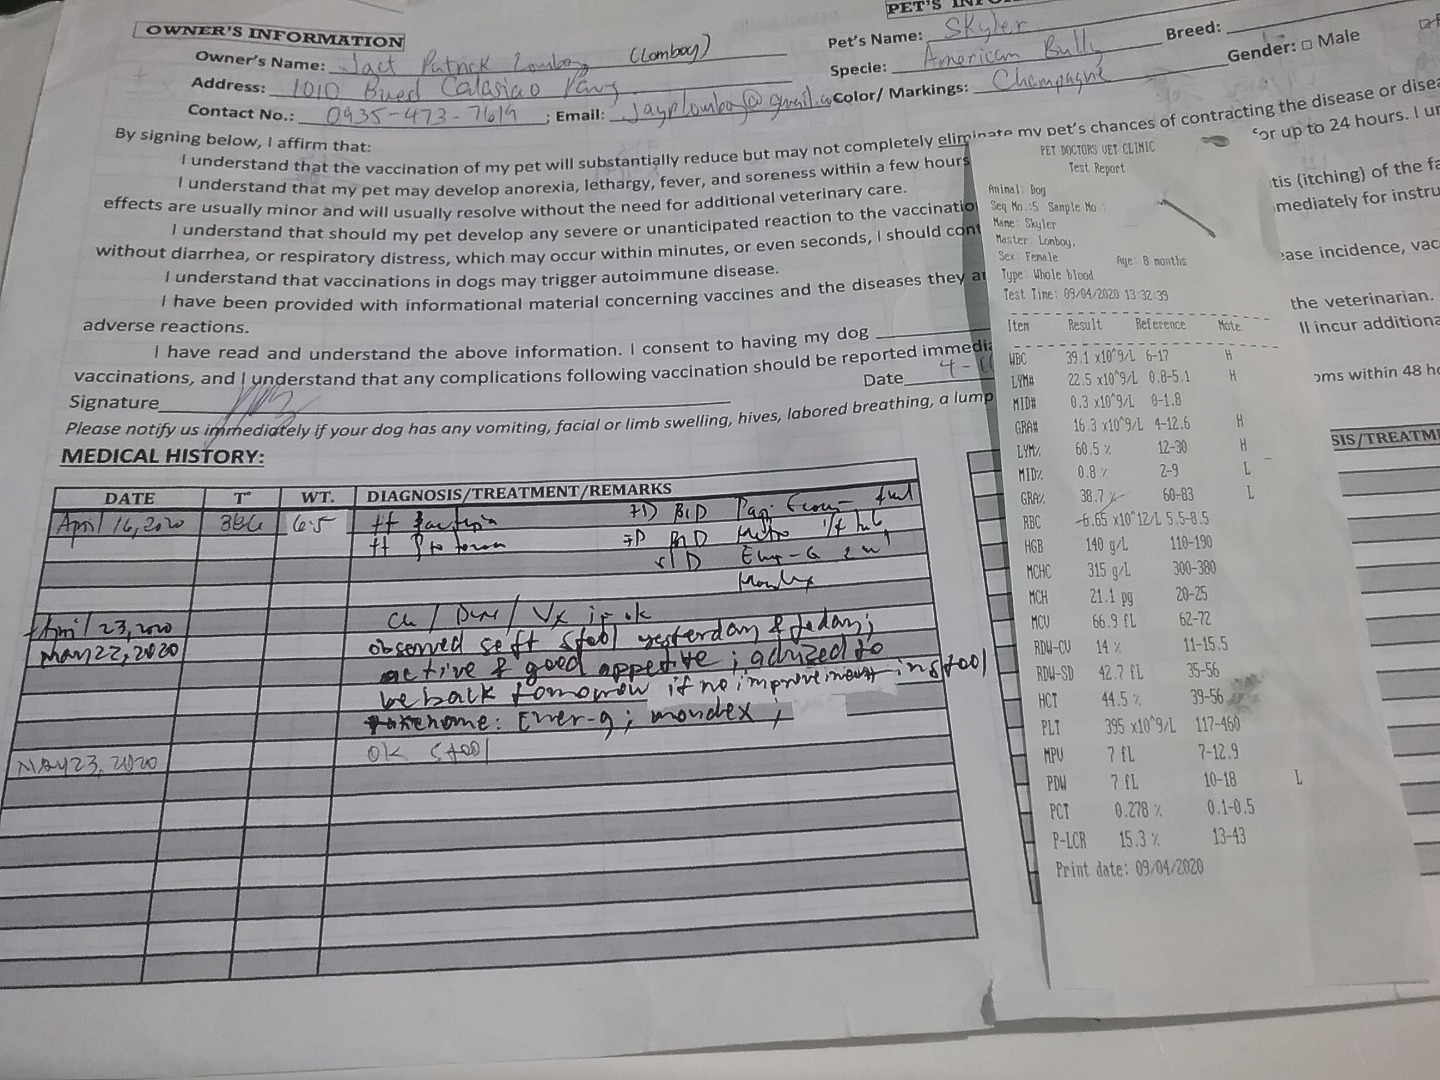 OWNER'S INFORMATION
Owner's Name: Patrick (Lomboy)
Address: 1010 Bued Calasiao Pang
Contact No.: 0935-473-7619 ; Email: Jayplomboy@gmail.co
PET'S INFO
Pet's Name: Skyler
Breed:
Specie: American Bully
Gender: □ Male
Color/ Markings: Champagne
By signing below, I affirm that:
I understand that the vaccination of my pet will substantially reduce but may not completely eliminate my pet's chances of contracting the disease or disea
I understand that my pet may develop anorexia, lethargy, fever, and soreness within a few hours
or up to 24 hours. I un
effects are usually minor and will usually resolve without the need for additional veterinary care.
I understand that should my pet develop any severe or unanticipated reaction to the vaccinatio
tis (itching) of the fa
without diarrhea, or respiratory distress, which may occur within minutes, or even seconds, I should cont
mediately for instru
I understand that vaccinations in dogs may trigger autoimmune disease.
I have been provided with informational material concerning vaccines and the diseases they a
ease incidence, vac
adverse reactions.
the veterinarian.
I have read and understand the above information. I consent to having my dog
ll incur additiona
vaccinations, and I understand that any complications following vaccination should be reported immedi
oms within 48 ho
Signature
Date 4-
Please notify us immediately if your dog has any vomiting, facial or limb swelling, hives, labored breathing, a lump
MEDICAL HISTORY:
DATE T° WT. DIAGNOSIS/TREATMENT/REMARKS
April 16, 2020 6.5 BID
BID
April 23, 2020
May 22, 2020 observed soft stool yesterday & today;
active & good appetite; advized to
be back tomorrow if no improvement in stool
takehome: Ener-g; mondex;
MAY 23, 2020 ok stool
SIS/TREATM
PET DOCTORS VET CLINIC
Test Report
Animal: Dog
Seq No.:5 Sample No.:
Name: Skyler
Master: Lomboy,
Sex: Female Age: 8 months
Type: Whole blood
Test Time: 09/04/2020 13:32:39
Item Result Reference Note
WBC 39.1 x10^9/L 6-17 H
LYM# 22.5 x10^9/L 0.8-5.1 H
MID# 0.3 x10^9/L 0-1.8
GRA# 16.3 x10^9/L 4-12.6 H
LYM% 60.5 % 12-30 H
MID% 0.8 % 2-9 L
GRA% 38.7 % 60-83 L
RBC 6.65 x10^12/L 5.5-8.5
HGB 140 g/L 110-190
MCHC 315 g/L 300-380
MCH 21.1 pg 20-25
MCV 66.9 fL 62-72
RDW-CV 14 % 11-15.5
RDW-SD 42.7 fL 35-56
HCT 44.5 % 39-56
PLT 395 x10^9/L 117-460
MPV 7 fL 7-12.9
PDW 7 fL 10-18 L
PCT 0.278 % 0.1-0.5
P-LCR 15.3 % 13-43
Print date: 09/04/2020